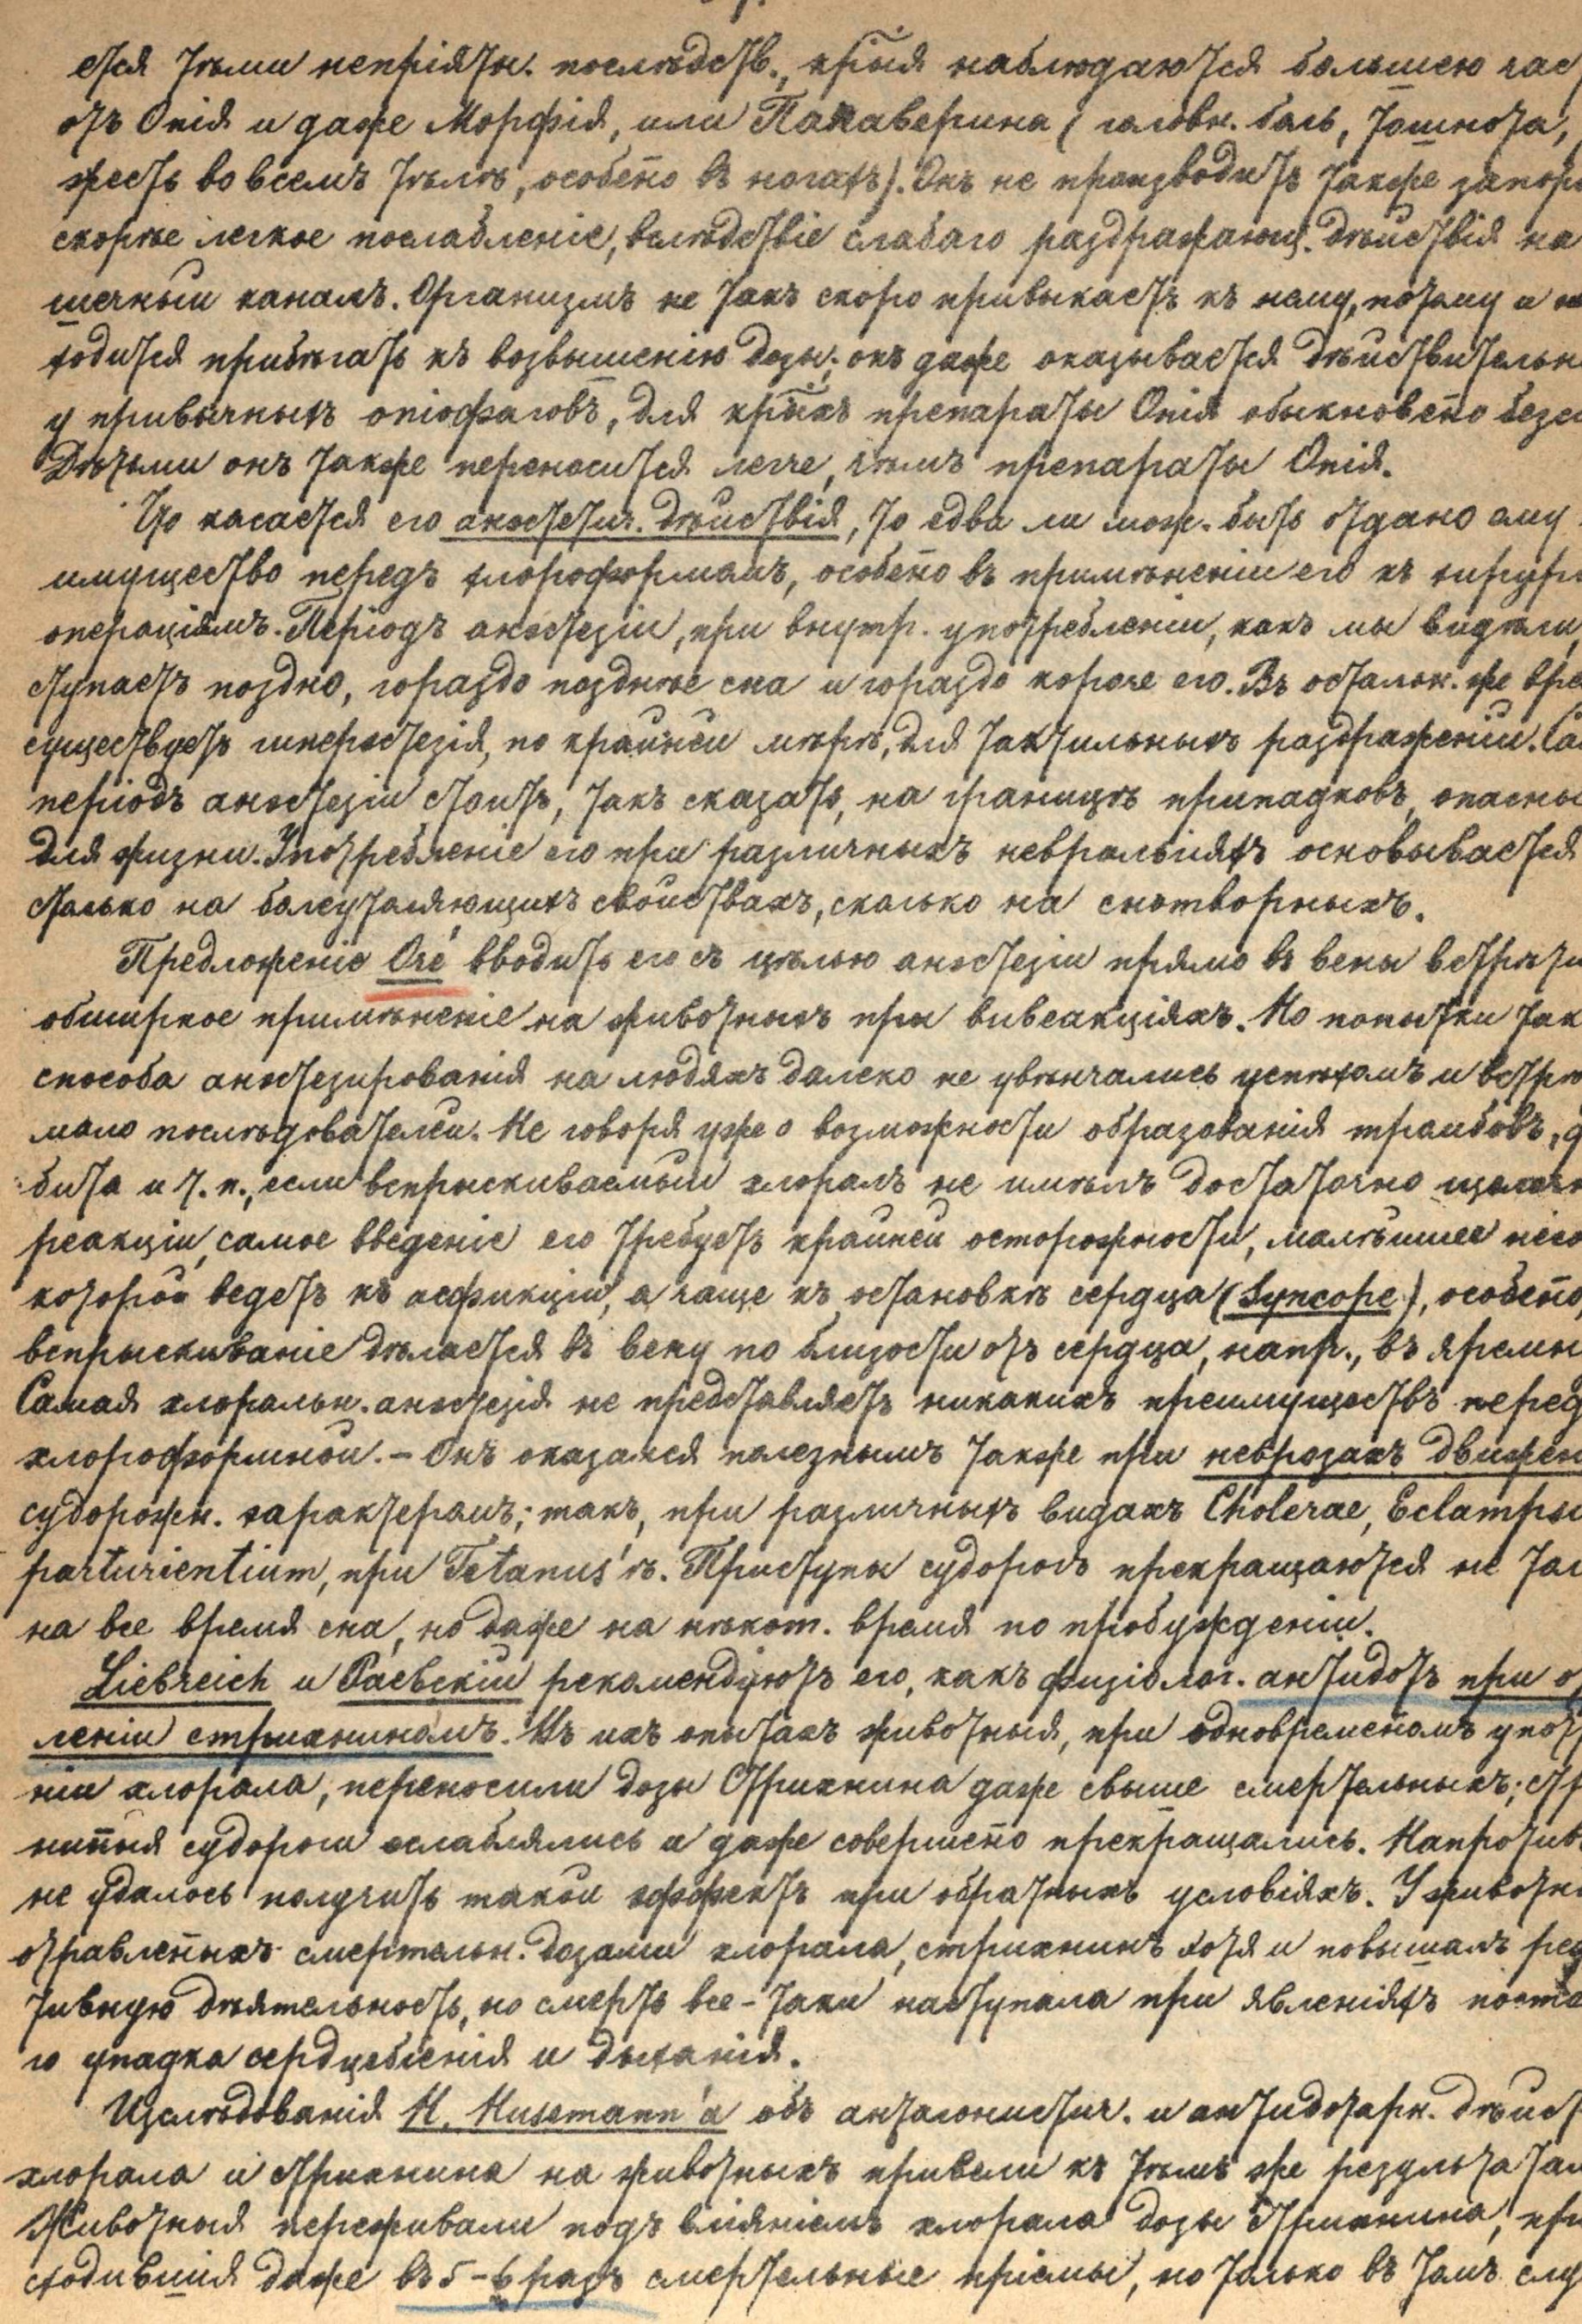 ется тѣми непріятн. послѣдств., крыя наблюдаются большею час
отъ Опія и даже Морфія, или Папаверина (головн. боль, тошнота,
жесть во всемъ тѣлѣ, особено въ ногахъ). Онъ не производитъ также запор
скорѣе легкое послабленіе, вслѣдствіе слабаго раздражающ. дѣйствія на
шечный каналъ. Организмъ не такъ скоро привыкаетъ къ нему, потому и н
ходится прибѣгать къ возвышенію дозы; онъ даже оказывается дѣйствительн
у привычныхъ опіофаговъ, для крыхъ препараты Опія обыкновено безс
Дѣтьми онъ также переносится легче, чѣмъ препараты Опія.
Что касается его анестетич. дѣйствія, то едва ли мож. быть отдано ему
имущество передъ хлороформомъ, особено въ примѣненіи его къ хирург
операціямъ. Періодъ анестезіи, при внутр. употребленіи, какъ мы видѣли,
ступаетъ поздно, гораздо позднѣе сна и гораздо короче его. Въ остальн. же вре
существуетъ гиперэстезія, по крайней мѣрѣ, для тактильныхъ раздраженій. Са
періодъ анестезіи стоитъ, такъ сказать, на границѣ припадковъ, опасны
для жизни. Употребленіе его при различныхъ невральгіяхъ основывается
столько на болеутоляющихъ свойствахъ, сколько на снотворныхъ.
Предложеніе Oré вводить его съ цѣлью анестезіи прямо въ вены встрѣти
обширное примѣненіе на животныхъ при вивсекціяхъ. Но попытки так
способа анестезированія на людяхъ далеко не увѣнчались успѣхомъ и встрѣ
мало послѣдователей. Не говоря уже о возможности образованія тромбовъ, ф
бита и т. п., если впрыскиваемый хлоралъ не имѣлъ достаточно щелочн
реакціи, самое введеніе его требуетъ крайней осторожности, малѣйшее несо
которой ведетъ къ асфикціи, а чаще къ остановкѣ сердца (Syncope), особено,
впрыскиваніе дѣлается въ вену по близости отъ сердца, напр., въ яремн
Самая хлоральн. анестезія не представляетъ никакихъ преимуществъ перед
хлороформной. – Онъ оказался полезнымъ также при неврозахъ движен
судорожн. характеромъ; такъ, при различныхъ видахъ Cholerae, Eclampsi
parturientium, при Tetanus'ѣ. Приступы судорогъ прекращаются не тол
на все время сна, но даже на нѣкот. время по пробужденіи.
Liebreich и Раевскій рекомендуютъ его, какъ физіолог. антидотъ при о
леніи стрихниномъ. Въ ихъ опытахъ животныя, при одновременомъ упот
ніи хлорала, переносили дозы Стрихнина даже свыше смертельныхъ; стр
нинныя судороги ослаблялись и даже совершено прекращались. Напротив
не удалось получить такой эффектъ при обратныхъ условіяхъ. У животн
отравленыхъ смертельн. дозами хлорала, стрихнинъ хотя и повышалъ реф
тивную дѣятельность, но смерть все-таки наступала при явленіяхъ посте
го упадка сердцебіенія и дыханія.
Изслѣдованія H. Husemann'а объ антагонистич. и антидотарн. дѣйст
хлорала и стрихнина на животныхъ привели къ тѣмъ же результатам
Животныя переживали подъ вліяніемъ хлорала дозы Стрихнина, пре
сходившія даже въ 5–6 разъ смертельные пріемы, но только въ томъ слу